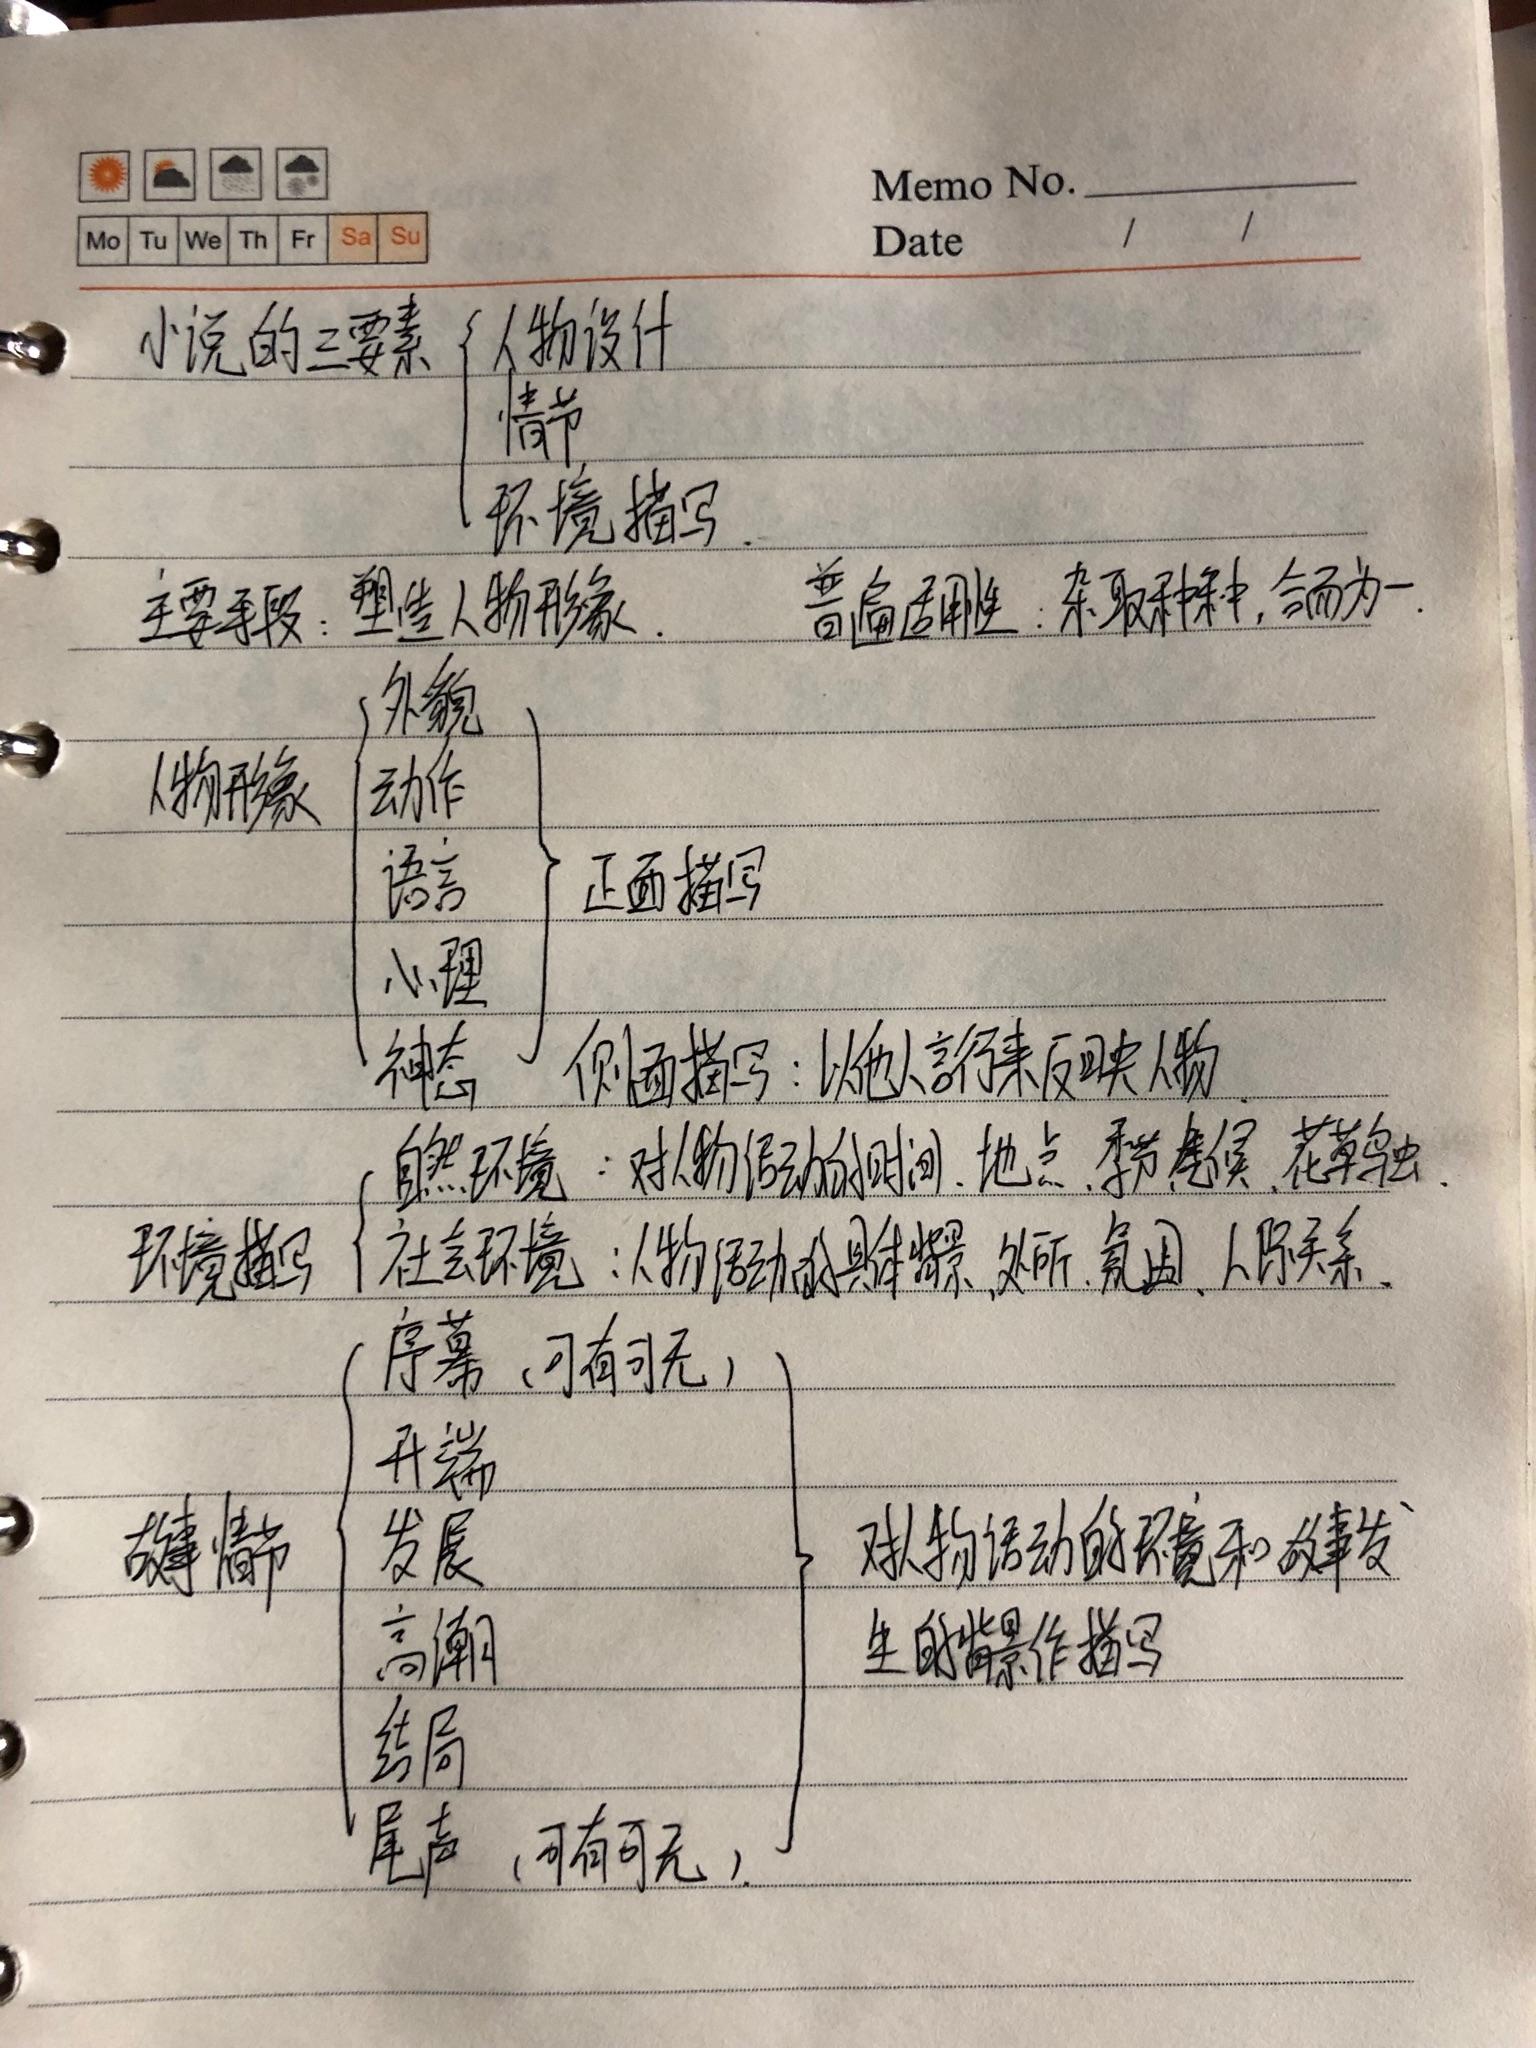 Memo No.
Mo Tu We Th Fr Sa Su
Date / /
小说的三要素 { 人物设计
情节
环境描写.
主要手段：塑造人物形象. 普遍适用性：杂取种种，合而为一.
外貌
人物形象 动作
语言 正面描写
心理
神态 侧面描写：以他人言行来反映人物.
自然环境：对人物活动的时间、地点、季节、气候、花草鸟虫.
环境描写 社会环境：人物活动的具体背景、处所、氛围、人际关系.
序幕（可有可无）
开端
故事情节 发展 对人物活动的环境和故事发
高潮 生的背景作描写
结局
尾声（可有可无）.